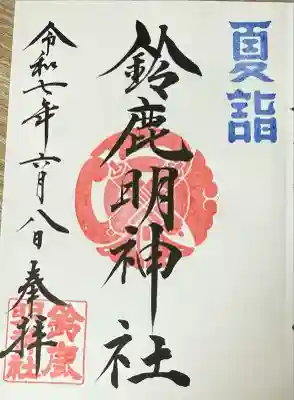 夏詣
鈴鹿明神社
令和七年六月八日奉拝
鈴鹿
明神社